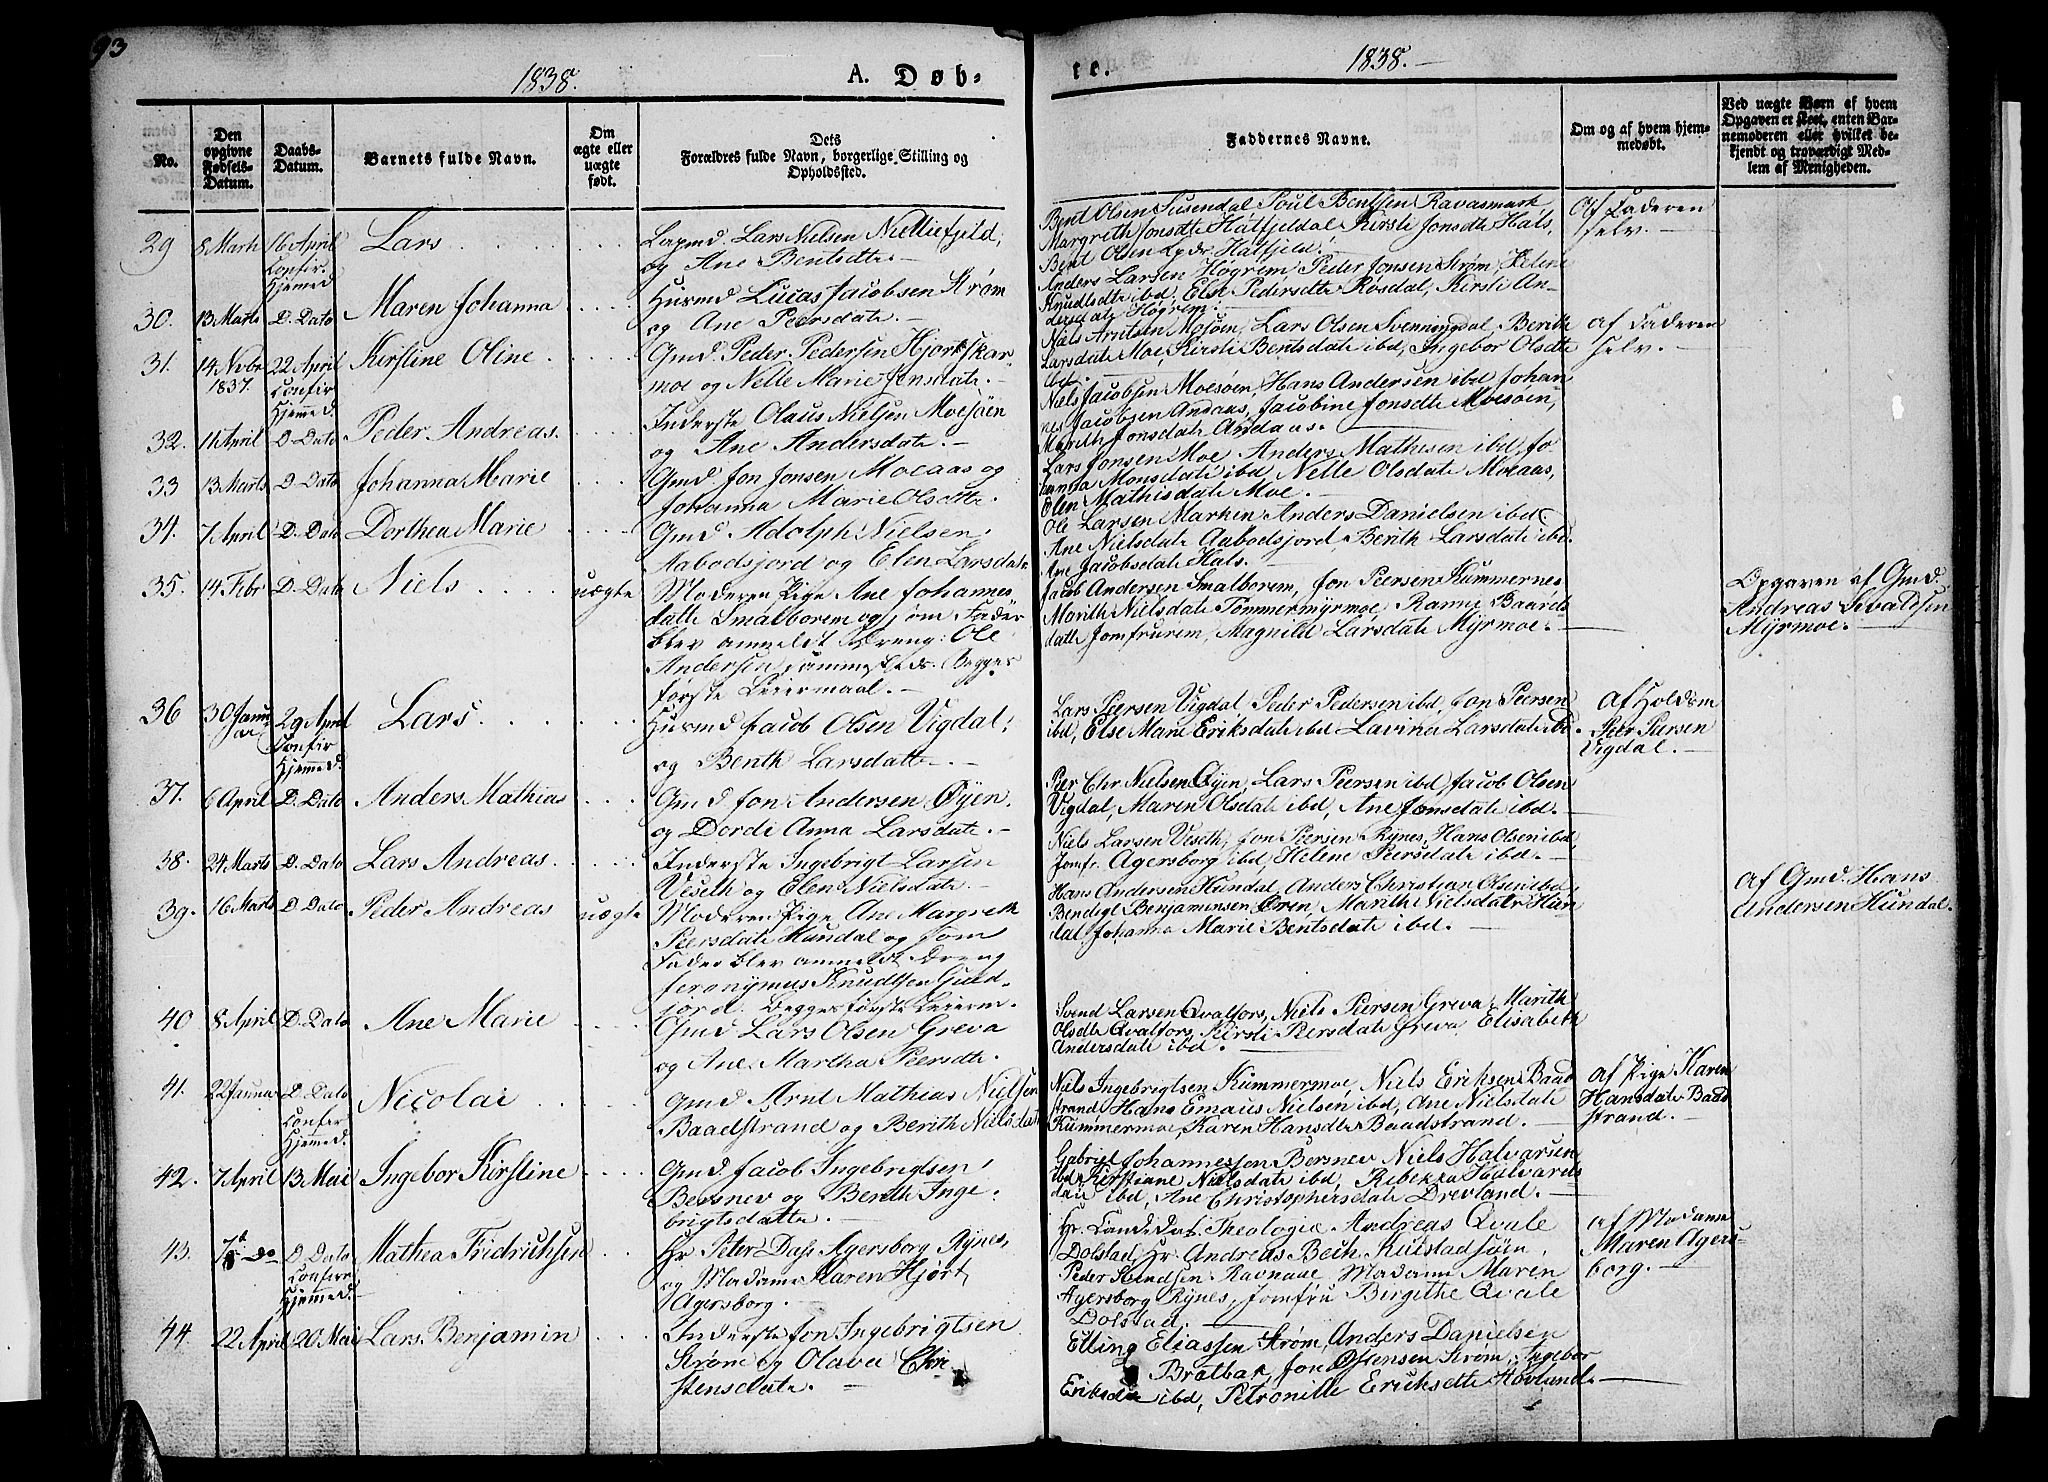 93
1838.
A. Døb-
te.
1838.
No.
Den opgivne Fødsels-Datum.
Daabs-Datum.
Barnets fulde Navn.
Om ægte eller uægte født.
Dets Forældres fulde Navn, borgerlige Stilling og Opholdssted.
Faddernes Navne.
Om og af hvem hjemmedøbt.
Ved uægte Børn af hvem Opgaven er skeet, enten Barnemoderen eller hvilket bekjendt og troværdigt Medlem af Menigheden.
29 8 Marts 16 April Confir. Hjemed Lars
og Ane Bentsdtr.
Bent Olsen Susendal Poul Bentsen Ravasmark
Margreth Jonsdtr Hatfjeldal Kirsti Jonsdtr Hals,
Bent Olsen Hatfjeld.
Af Faderen selv.
30. 13 Marts D. Dato Maren Johanna
Husmd Lucas Jacobsen Strøm
og Ane Peersdatr.
Anders Larsen Høgrem, Peder Jonsen Strøm, Helene
Knudsdtr ibd. Else Pedersdtr Rosdal, Kirsti An-
dersdatr Høgrem.
31. 14 Nvbr 1837. 22 April Confir Hjemmed. Kirstine Oline
Gmd. Peder Pedersen Hjortskar-
moe og Nelle Marie Jonsdatr.
Niels Arntsen Mosjøen, Lars Olsen Svenningdal, Berith
Larsdatr Moe, Kirsti Bentsdatr ibd, Ingebor Olsdtr
ibd.
af Faderen selv.
32. 11 April D Dato Peder Andreas.
Inderste Olaus Nielsen Moesøen
og Ane Andersdatr.
Niels Jacobsen Moesøen, Hans Andersen ibd Johan
nes Jacobsen Andaas, Jacobine Jonsdtr Moesøen,
Marith Jonsdatr Andaas.
33 13 Marts D Dato Johanna Marie
Gmd Jon Jonsen Moeaas og
Johanna Marie Olsdtr.
Lars Jonsen Moe, Anders Mathisen ibd Jo
hanna Monsdatr ibd Nelle Olsdatr Moeaas,
Elen Mathisdatr Moe.
34. 7 April D. Dato Dorthea Marie
Gmd Adolph Nielsen
Aabodsjord og Elen Larsdatr
Ole Larsen Marken Anders Danielsen ibd
Ane Nielsdatr Aabodsjord, Berith Larsdatr ibd.
Ane Jacobsdatr Hals.
35. 14 Febr D. Dato Niels uægte
Moderen Pige Ane Johannes
datter Smalborem og som Fader
blev anmeldt Dreng: Ole
Andersen sammesteds. Begges
første Leiermaal.
Jacob Andersen Smalborem, Jon Peersen Kummernes
Marith Nielsdatr Tømmermyrmoe, Ranne Baards
datr Jomfrurem, Magnild Larsdatr Myrmoe.
Opgaven af Gmd.
Andreas Sivaldsen
Myrmoe.
36 30 Januar 29 April Confir Hjemmed. Lars
Husmd Jacob Olsen Vigdal,
og Berith Larsdatter.
Lars Peersen Vigdal Peder Pedersen ibd, Jon Peersen
ibd, Else Marie Eriksdatr ibd Lavina Larsdatr ibd.
Af Holdsm
Peer Peersen
Vigdal.
37. 6 April D. Dato Anders Mathias
Gmd Jon Andersen Øyen,
og Dordi Anna Larsdatr.
Peer Chr Nielsen Øyen, Lars Peersen ibd, Jacob Olsen
Vigdal, Maren Olsdatr ibd, Ane Jonsdatr ibd.
38. 24 Marts D. Dato Lars Andreas.
Inderste Ingebrigt Larsen
Veseth og Elen Nielsdatr.
Niels Larsen Veseth, Jon Peersen Rynes, Hans Olsen ibd,
Jomf. Agersborg ibd, Helene Peersdatr ibd.
39. 16 Marts D Dato Peder Andreas uægte
Moderen Pige Ane Margreth
Peersdatr Hundal og som
Fader blev anmeldt Dreng
Jeronymus Knudsen Guld-
jord. Begges første Leierm.
Hans Andersen Hundal, Anders Christian Olsen ibd,
Bendigt Benjaminsen Øren, Marith Nielsdatr Hun
dal, Johanna Marie Bentsdatr ibd.
af Gmd. Hans
Andersen Hundal.
40 8 April D. Dato Ane Marie
Gmd Lars Olsen Greva
og Ane Martha Peersdtr.
Svend Larsen Qvalfors, Niels Peersen Greva, Marith
Olsdtr Qvalfors, Kirsti Peersdatr Greva Elisabeth
Andersdatr ibd.
41. 22 Januar D. Dato Confir Hjemed. Nicolai
Gmd Arnt Mathias Nielsen
Baadstrand og Berith Nielsdatr
Niels Ingebrigtsen Kummermoe, Niels Eriksen Baad
strand, Hans Emaus Nielsen ibd, Ane Nielsdatr
Kummermoe, Karen Hansdtr Baadstrand.
af Pige Karen
Hansdatr Baad
strand.
42. 7 April 13 Mai Ingebor Kirstine
Gmd Jacob Ingebrigtsen,
Bersnev og Berith Inge-
brigtsdatter.
Gabriel Johannessen Bersnev Niels Halvarsen
ibd Kirstiane Nielsdatr ibd, Rebekka Halvards
datr ibd, Ane Christophersdatr Drevland.
43. 7d do D Dato Confir Hjemmed. Mathea Fridrichsen
Hr Peter Dass Agersborg Rynes,
og Madame Maren Hjort
Agersborg.
Hr. Candidat. Theologiæ Andreas Qvale
Dolstad, Hr. Andreas Bech Kulstadsjøen,
Peder Svendsen Ravnaae, Madame Maren
Agersborg Rynes, Jomfru Birgithe Qvale
Dolstad.
af Madame
Maren Agers-
borg.
44. 22 April 20 Mai Lars Benjamin
Inderste Jon Ingebrigtsen
Strøm og Olava Chri-
stensdatr.
Elling Eliassen Strøm, Anders Danielsen
Bratbak, Jon Østensen Strøm, Ingebor
Eriksdtr ibd, Petronille Eriksdtr Hovland.